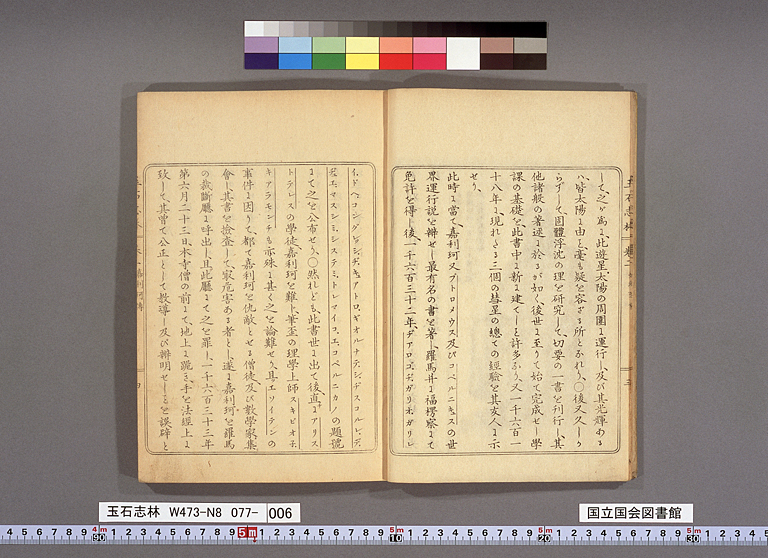 して之が爲に此遊星太陽の周圍に運行し及び其光輝ある
ハ皆太陽に由ると毫も疑を容ざる所となれり〇後又久しか
らずして固體浮沈の理を研究して切要の一書を刊行し其
他諸般の著述に於るが如く後世に至りて始て完成せし學
課の基礎を此書中に新に建てしを許多なり又一千六百一
十八年に現れたる三個の彗星の總ての經驗を其友人に示
せり
此時に當て嘉利珂又プトロメウス及びコペルニキュスの世
界運行說を辨ぜし最有名の書を著し羅馬并に福楞察にて
免許を得し後一千六百三十二年ヂアロゴヂガリレオガリレ
の題號
にて之を公布せり〇然れども此書世に出て後直にアリス
トテレスの學徒嘉利珂を難し筆舌の理學上師スキピオネ
キアラモンチも亦殊に甚く之を論難せり且エソイテンの
事件に因りて都て嘉利珂を仇敵とせる僧徒及び數學家集
會し其書を撿査して最危害ある者とし遂に嘉利珂を羅馬
の裁斷廳に呼出し且此廳にて之を罪し一千六百三十三年
第六月二十三日本寺僧の前にて地上に跪き手を法經上に
致して其曾て公正として敎導し及び辨明せしをを誤辟と
玉石志林
玉石志林 W473-N8 077- 006
国立国会図書館